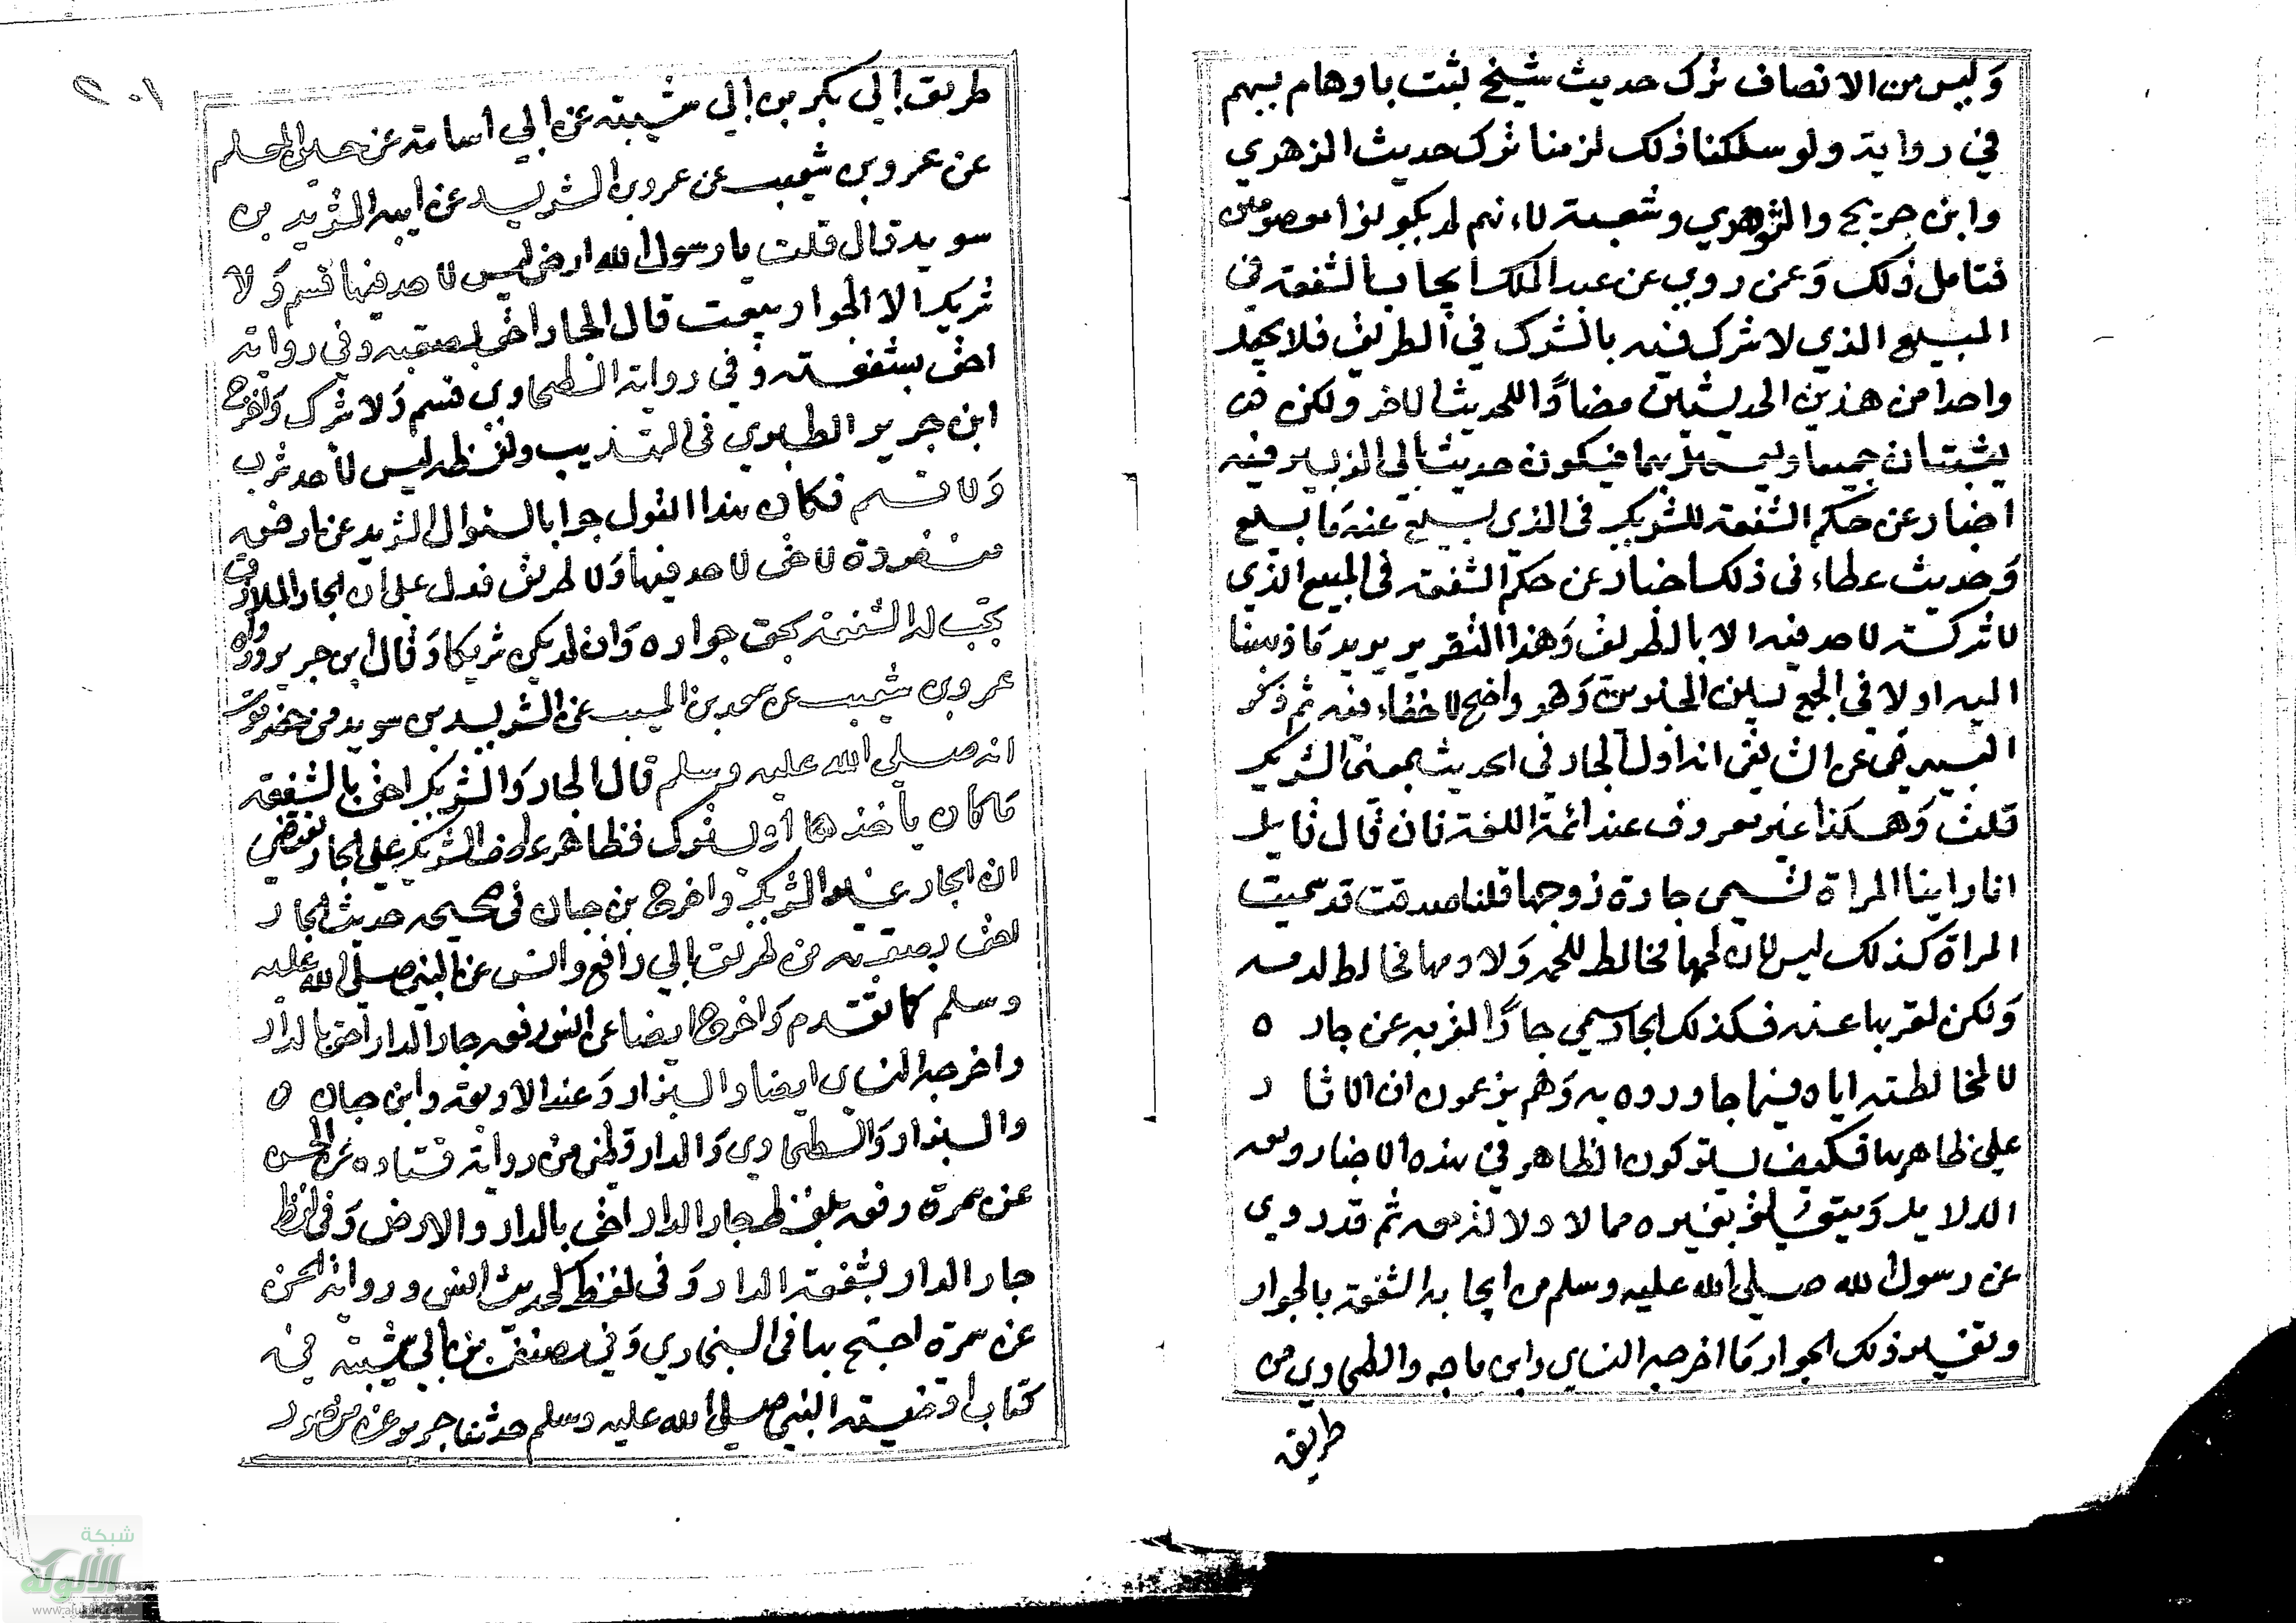 وليس من الانصاف ترك حديث شيخ ثبت باوهام يهم
في رواية ولو سلكنا ذلك لزمنا ترك حديث الزهري
وابن جريج والثوري وشعبة لانهم لم يكونوا معصومين
فتامل ذلك وعمن روي عن عبد الملك ايجاب الشفعة في
المبيع الذي لا شرك فيه بالشرك في الطريق فلا يجعل
واحدا من هذين الحديثين مضادا للحديث الاخر ولكن
يثبتان جميعا ويعمل بهما فيكون حديث ابي الزبير فيه
اخبار عن حكم الشفعة للشريك في الذي بيع عنه ما بيع
وحديث عطاء في ذلك اخبار عن حكم الشفعة في المبيع الذي
لا شركة لاحد فيه الا بالطريق وهذا التقرير يويد ما ذهبنا
اليه اولا في الجمع بين وهو واضح لا خفاء فيه ثم ذكر
البيهقي عن الشافعي انه اول الجار في الحديث بمعنى الشريك
قلت وهكذا غير معروف عند ائمة اللغة فان قال قايل
انا راينا المراة تسمى جارة زوجها قلنا صدقت قد سميت
المراة كذلك ليس لان لحمها مخالط للحمه ولا دمها مخالط لدمه
ولكن لقربها عنه فكذلك الجار سمي جارا لقربه عن جاره
لا لمخالطته اياه فيما جاوره به وهم يزعمون ان الاثار
على ظاهرها فكيف يتركون الظاهر في هذه الاخبار ومعه
الدلايل ويتعلق بغيره مما لا دلالة معه ثم قد روي
عن رسول الله صلى الله عليه وسلم من ايجابه الشفعة بالجوار
وتفسير ذلك الجوار ما اخرجه النساي وابن ماجه والطحاوي من
طريق
٢٠١
طريق ابي بكر بن ابي شيبة عن ابي اسامة عن حسين المعلم
عن عمرو بن شعيب عن عمرو بن الشريد عن ابيه الشريد بن
سويد قال قلت يا رسول الله ارض ليس لاحد فيها قسم ولا
شريك الا الجوار بيعت قال الجار احق بصقبه وفي رواية
احق بشفعته وفي رواية الطحاوي قسم ولا شرك واخرج
ابن جرير الطبري في التهذيب ولفظه ليس لاحد شرب
ولا قسم فكان هذا القول جوابا لسوال الشريد عن ارض
منفردة لا حق لاحد فيها ولا طريق فدل على ان الجار الملازق
تجب له الشفعة بحق جواره وان لم يكن شريكا وقال ابن جرير ورواه
عمرو بن شعيب عن سعيد بن المسيب عن الشريد بن سويد من حضرموت
انه صلى الله عليه وسلم قال الجار والشريك احق بالشفعة
ما كان ياخذها او يترك فظاهر عطف الشريك على الجار يقتضي
ان الجار غير الشريك واخرج بن حبان في صحيحه حديث الجار
احق بصقبه من طريق ابي رافع وانس عن النبي صلى الله عليه
وسلم كما تقدم واخرج ايضا عن انس رفعه جار الدار احق بالدار
واخرجه النساي ايضا والبزار وعند الاربعة وابن حبان
والبزار والطحاوي والدارقطني من رواية قتادة عن الحسن
عن سمرة رفعه بلفظ جار الدار احق بالدار والارض وفي لفظ
جار الدار بشفعة الدار وفي لفظ كحديث انس ورواية الحسن
عن سمرة احتج بها في البخاري وفي مصنف بن ابي شيبة في
كتاب اقضية النبي صلى الله عليه وسلم حدثنا جرير عن منصور
شبكة
الألوكة
www.alukah.net